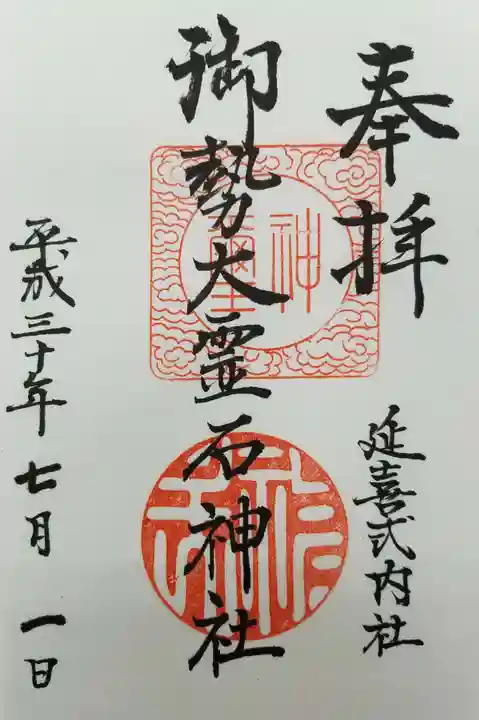 奉拝
延喜式内社
御勢大霊石神社
平成三十年七月一日